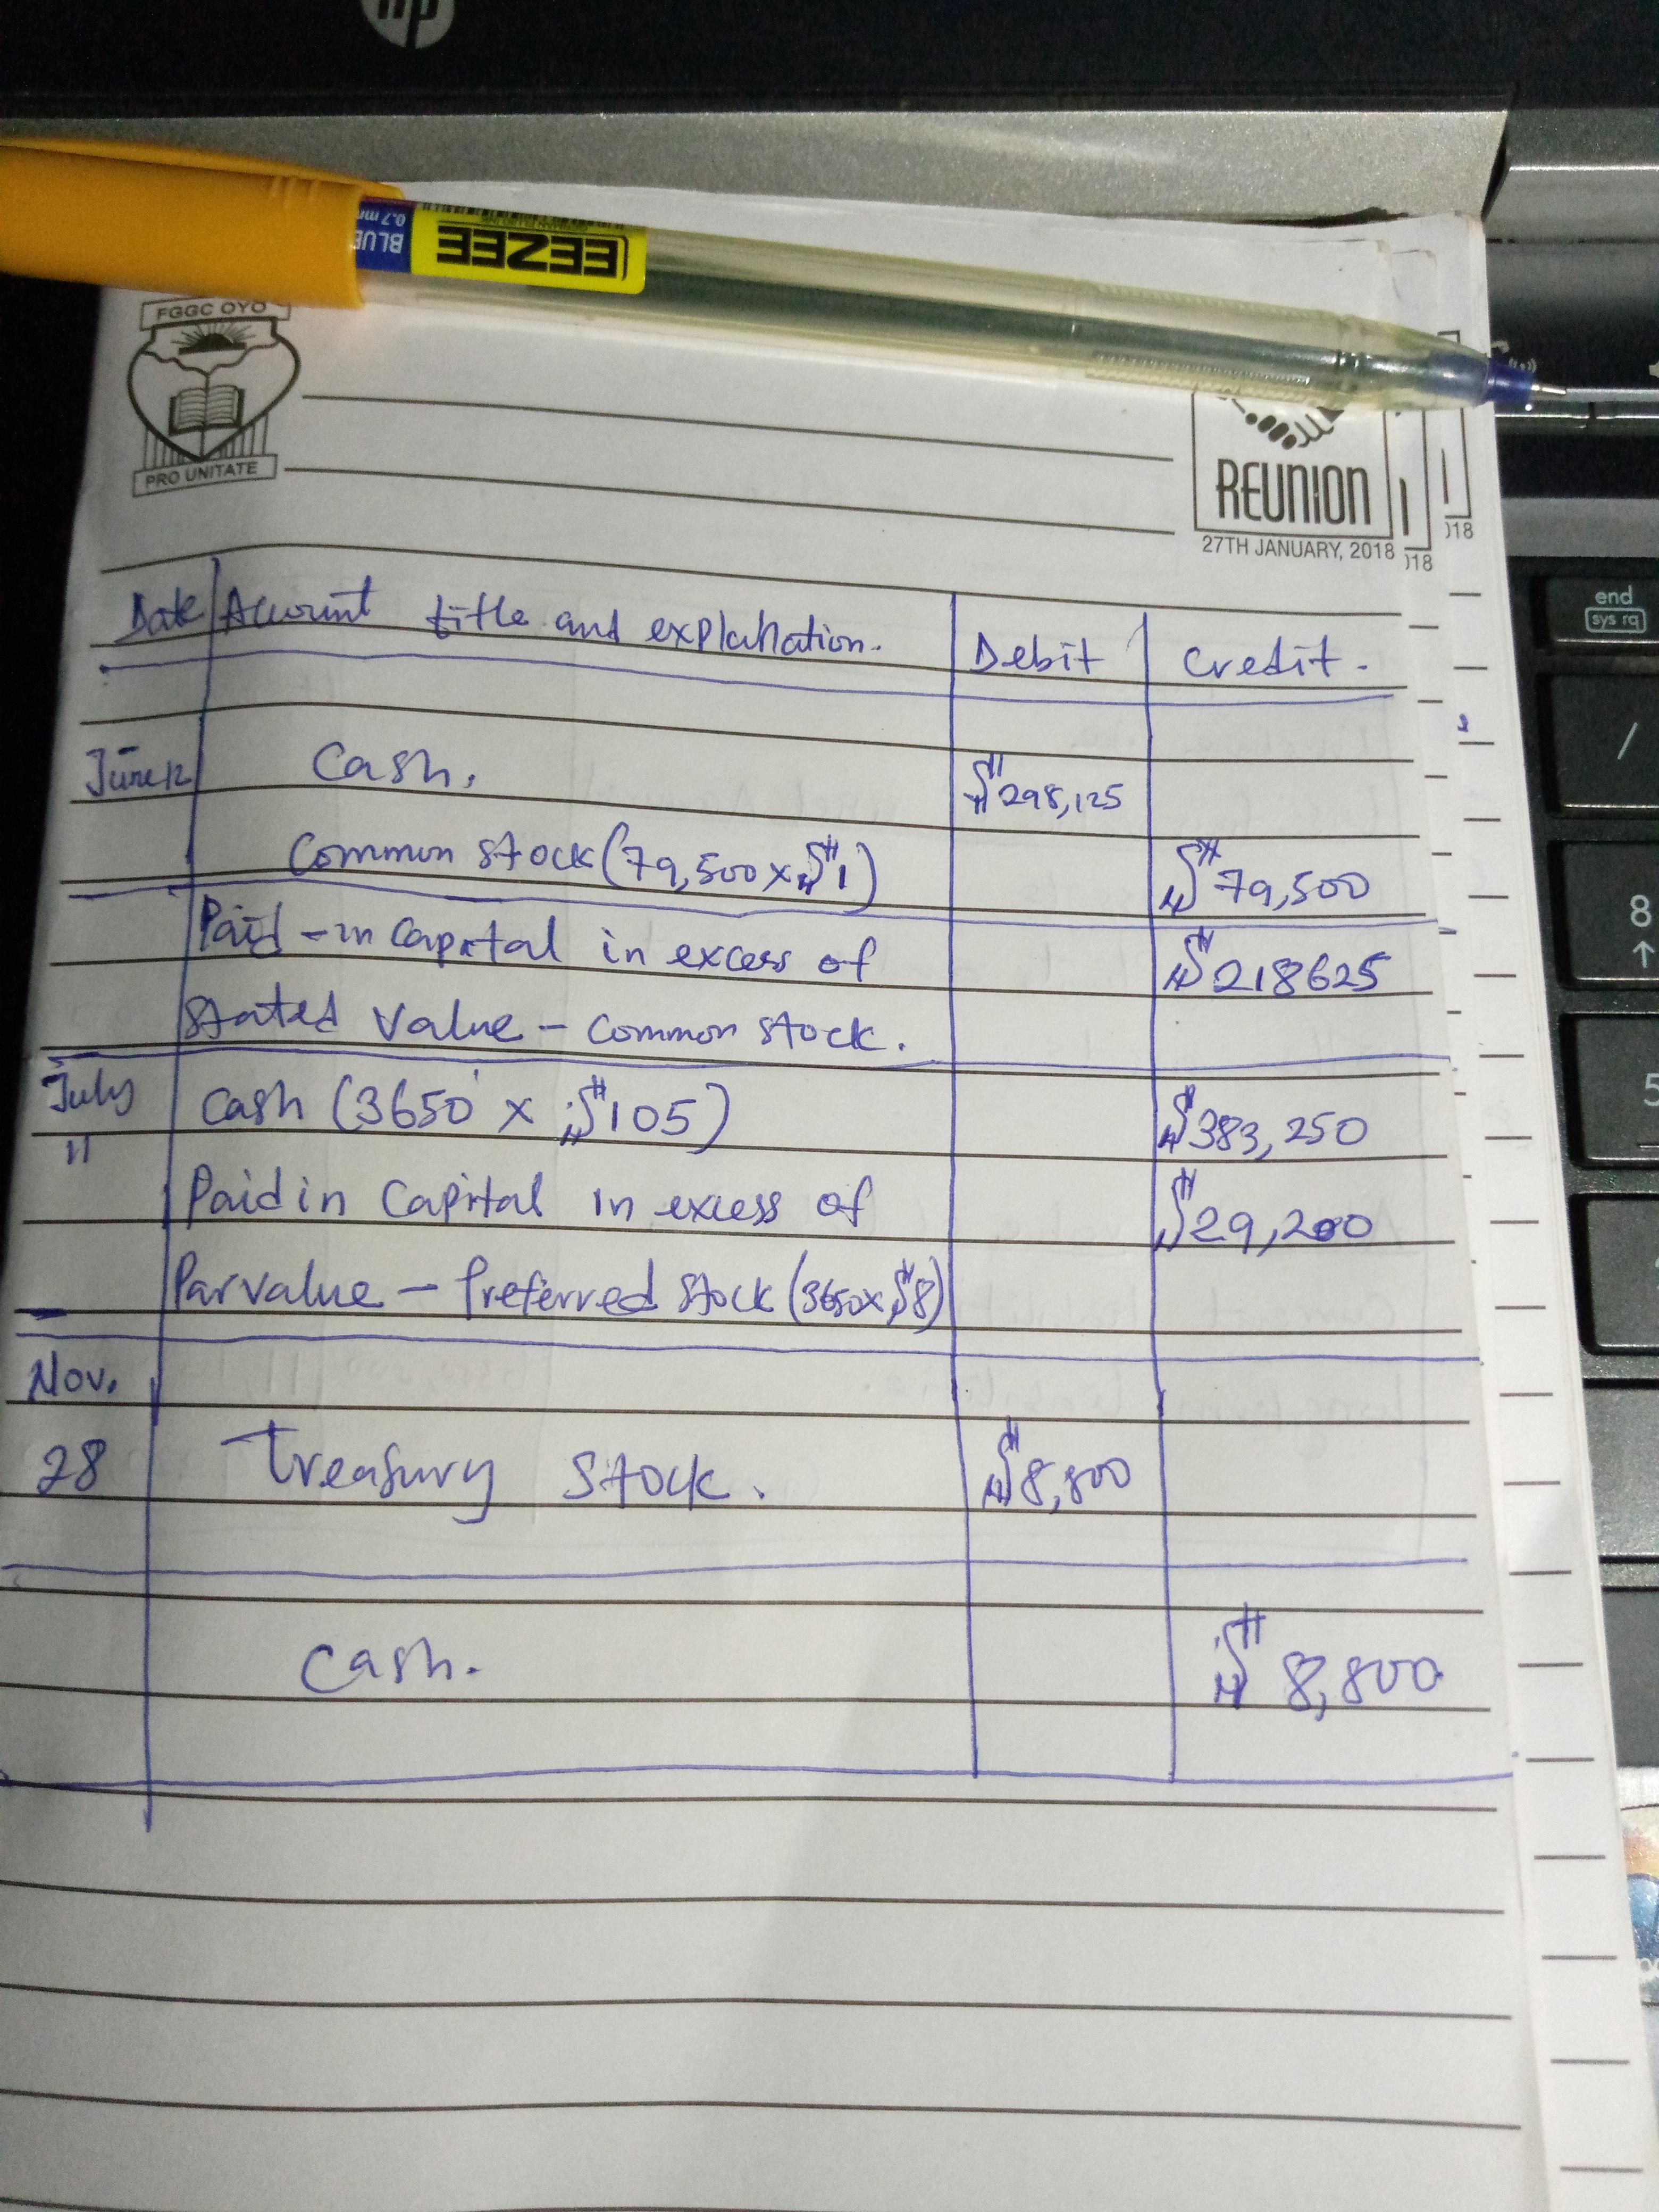 hp
BLUE
0.7 mm
EEZEE
FGGC OYO
PRO UNITATE
REUNION
27TH JANUARY, 2018
018
018
Date Account title and explanation. Debit Credit.
June 12 Cash. $298,125
Common stock (79,500 x $1) $79,500
Paid-in capital in excess of $218625
stated value - common stock.
July cash (3650 x $105) $383,250
11
Paid in Capital in excess of $29,200
Par value - Preferred stock (3650x $8)
Nov.
28 Treasury stock. $8,800
Cash. $8,800
end
sys rq
/
8
↑
5